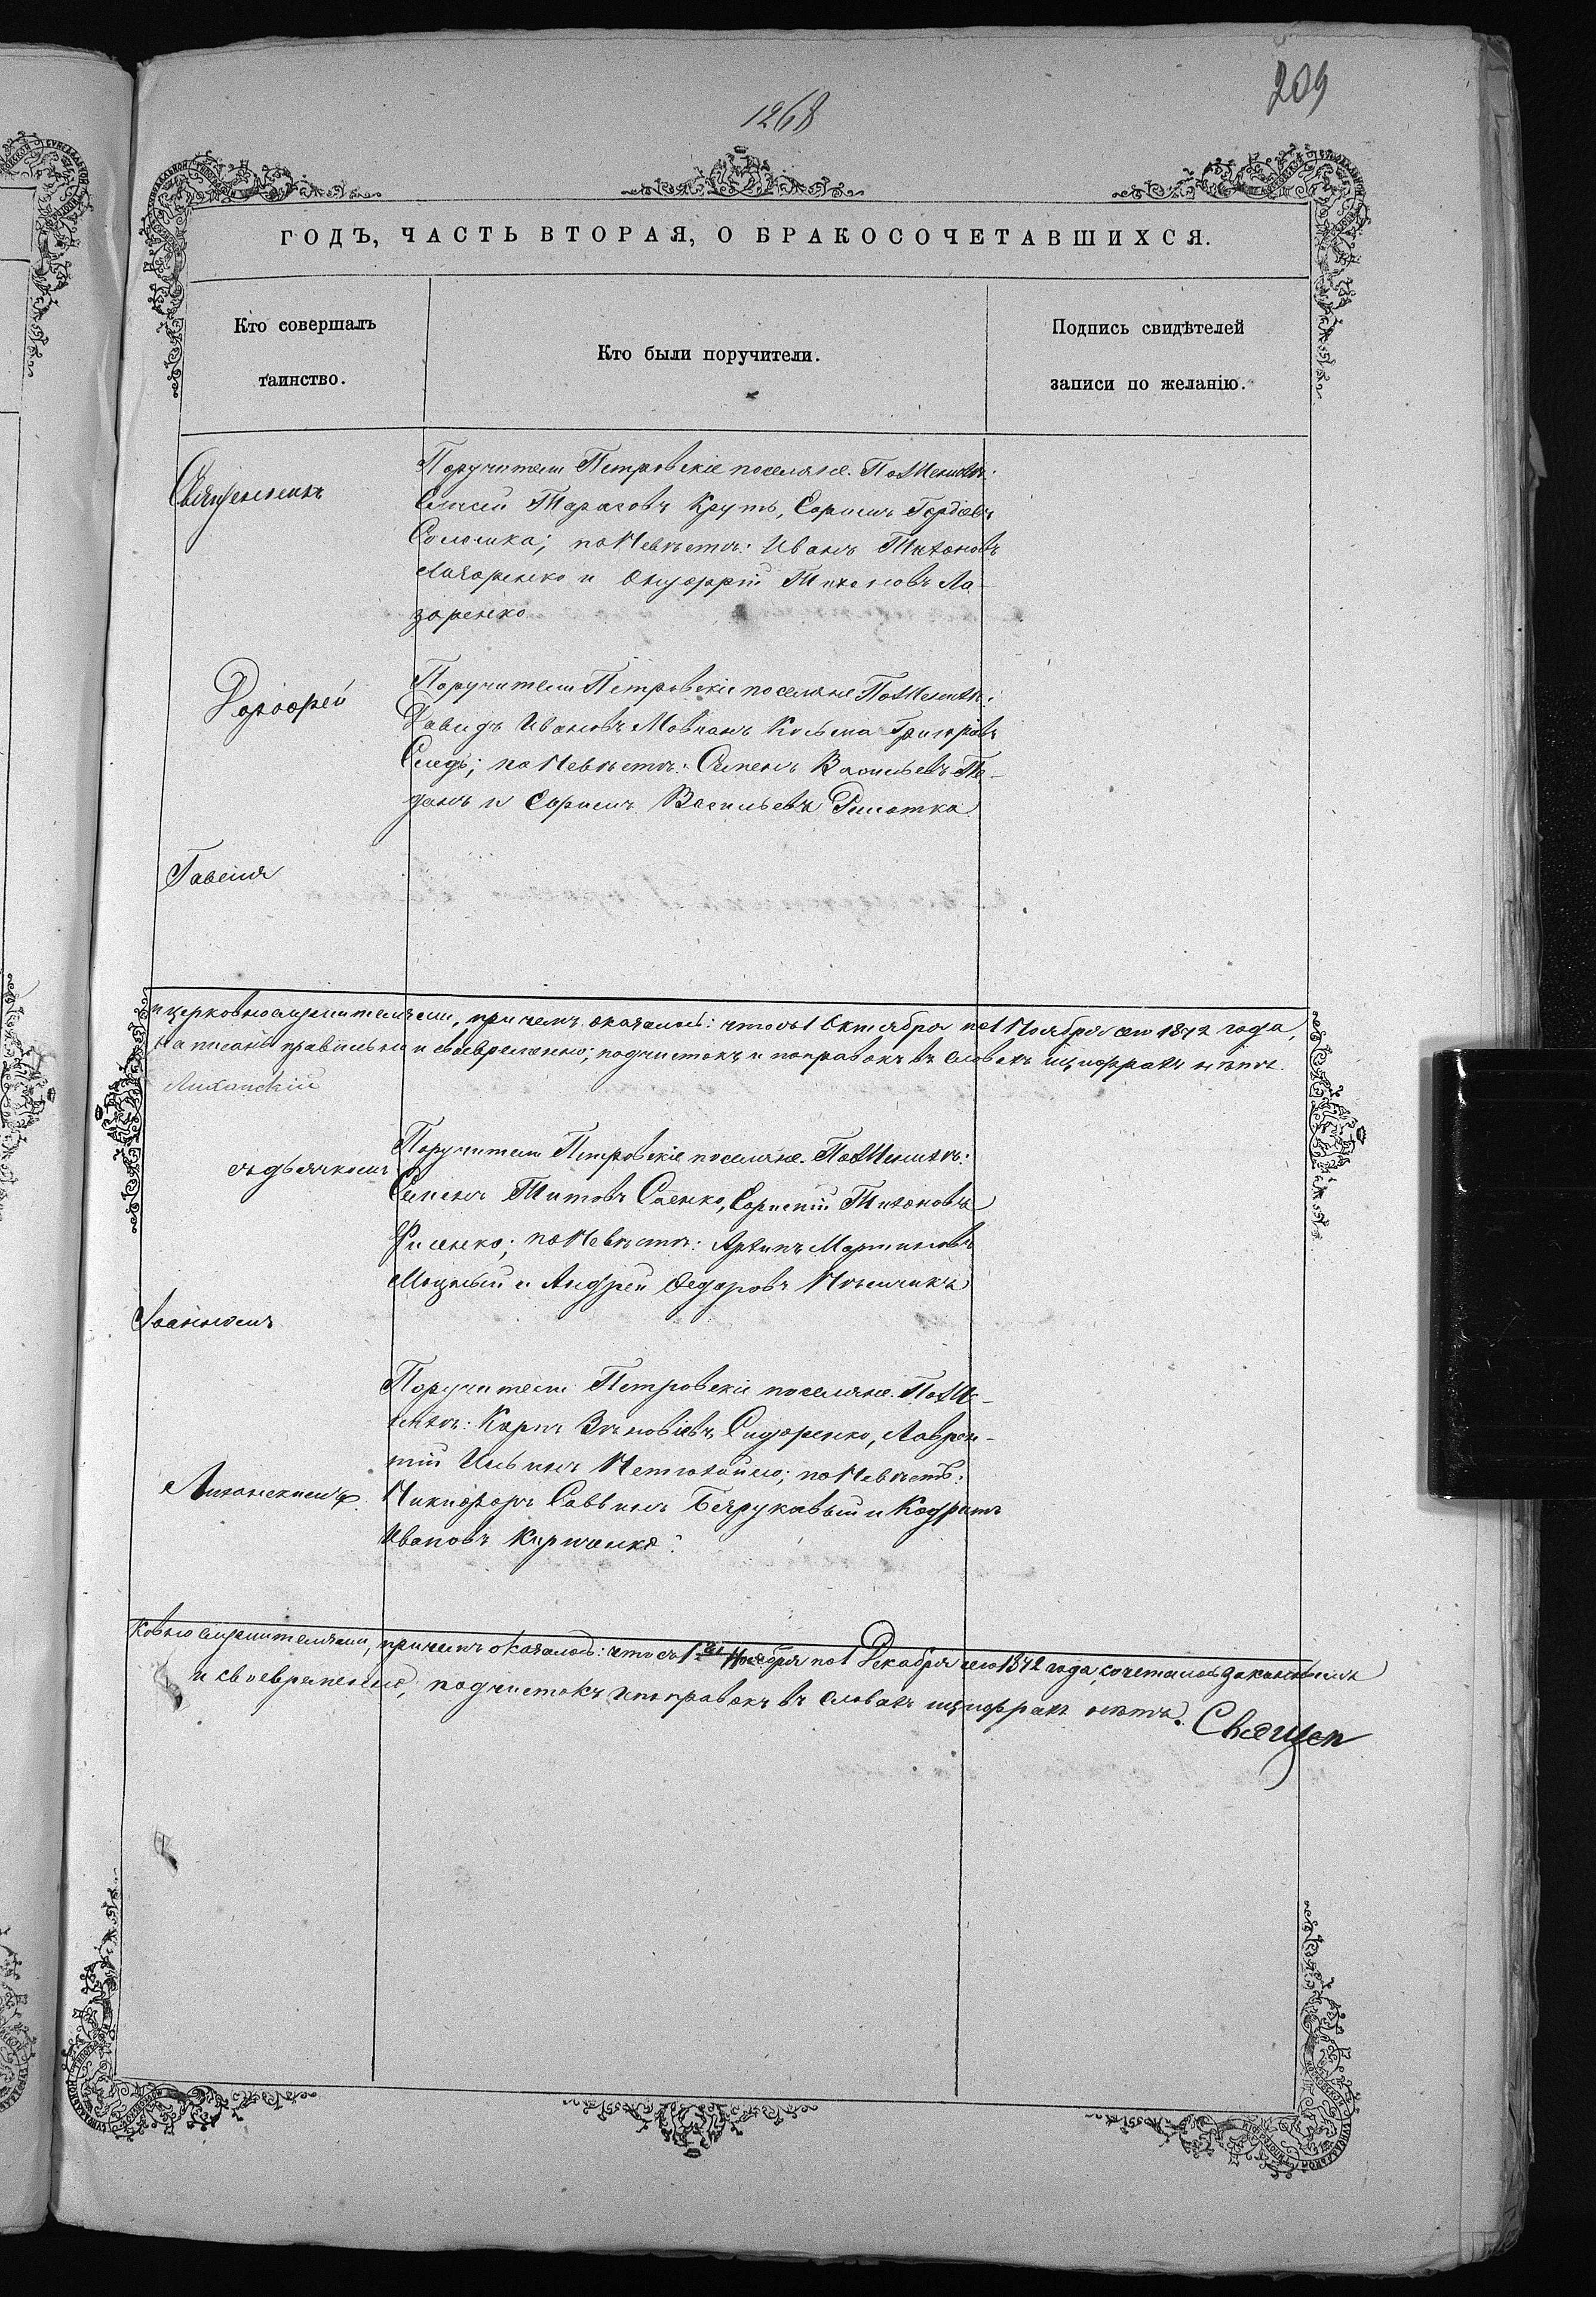 1268
209
ГОДЪ, ЧАСТЬ ВТОРАЯ, О БРАКОСОЧЕТАВШИХСЯ.
Кто совершалъ
таинство.
Кто были поручители.
Подпись свидѣтелей
записи по желанію.
Священникъ
Поручители Петровскіе поселяне. По Женихѣ:
Тарасовъ Крутъ, Ефимъ Гордіевъ
Соломка; по Невѣстѣ: Иванъ Тихоновъ
Лазаренко и Онуфрій Тихоновъ Ла-
заренко
Дорофей
Поручители Петровскіе поселяне По Женихѣ:
Давидъ Ивановъ Мовчанъ Косьма Григорьевъ
по Невѣстѣ: Семенъ Васильевъ
и Ефимъ Васильевъ
Гавеля
и церковнослужителями, при чемъ оказалось: что съ 1 Октября по 1 Ноября сего 1872 года,
написаны правильно и своевременно; подчистокъ и поправокъ въ словахъ и цифрахъ нѣтъ.
Лиханскій
съ дьячкомъ
Поручители Петровскіе поселяне. По Женихѣ:
Семенъ Титовъ Саенко, Тихоновъ
Фисенко; по Невѣстѣ: Архипъ Мартиновъ
и Андрей Федоровъ
Іоанномъ
Поручители Петровскіе поселяне. По Же-
нихѣ: Карпъ Зѣновіевъ Сидоренко, Лаврен-
тій Ильинъ по Невѣстѣ:
Лиханскимъ.
Никифоръ Саввинъ и Кодратъ
Ивановъ
ковнослужителями, причемъ оказалось: что съ 1го Ноября по 1 Декабря сего 1872 года, сочетались законнымъ
и своевременно; подчистокъ и поправокъ въ словахъ и цифрахъ нѣтъ. Священ